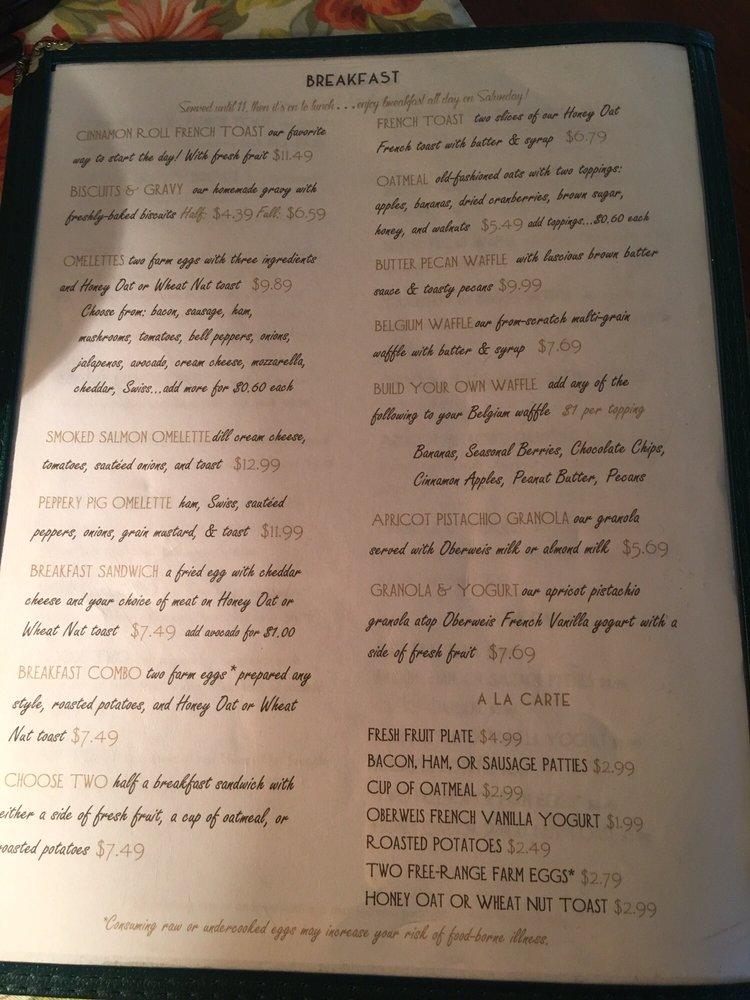 BREAKFAST
Served until 11, then it's on to lunch . . . enjoy breakfast all day on Saturday!
CINNAMON ROLL FRENCH TOAST our favorite
way to start the day! With fresh fruit $11.49
BISCUITS & GRAVY our homemade gravy with
freshly-baked biscuits Half: $4.39 Full: $6.59
OMELETTES two farm eggs with three ingredients
and Honey Oat or Wheat Nut toast $9.89
Choose from: bacon, sausage, ham,
mushrooms, tomatoes, bell peppers, onions,
jalapenos, avocado, cream cheese, mozzarella,
cheddar, Swiss...add more for $0.60 each
SMOKED SALMON OMELETTE dill cream cheese,
tomatoes, sautéed onions, and toast $12.99
PEPPERY PIG OMELETTE ham, Swiss, sautéed
peppers, onions, grain mustard, & toast $11.99
BREAKFAST SANDWICH a fried egg with cheddar
cheese and your choice of meat on Honey Oat or
Wheat Nut toast $7.49 add avocado for $1.00
BREAKFAST COMBO two farm eggs *prepared any
style, roasted potatoes, and Honey Oat or Wheat
Nut toast $7.49
CHOOSE TWO half a breakfast sandwich with
either a side of fresh fruit, a cup of oatmeal, or
roasted potatoes $7.49
FRENCH TOAST two slices of our Honey Oat
French toast with butter & syrup $6.79
OATMEAL old-fashioned oats with two toppings:
apples, bananas, dried cranberries, brown sugar,
honey, and walnuts $5.49 add toppings...$0.60 each
BUTTER PECAN WAFFLE with luscious brown butter
sauce & toasty pecans $9.99
BELGIUM WAFFLE our from-scratch multi-grain
waffle with butter & syrup $7.69
BUILD YOUR OWN WAFFLE add any of the
following to your Belgium waffle $1 per topping
Bananas, Seasonal Berries, Chocolate Chips,
Cinnamon Apples, Peanut Butter, Pecans
APRICOT PISTACHIO GRANOLA our granola
served with Oberweis milk or almond milk $5.69
GRANOLA & YOGURT our apricot pistachio
granola atop Oberweis French Vanilla yogurt with a
side of fresh fruit $7.69
A LA CARTE
FRESH FRUIT PLATE $4.99
BACON, HAM, OR SAUSAGE PATTIES $2.99
CUP OF OATMEAL $2.99
OBERWEIS FRENCH VANILLA YOGURT $1.99
ROASTED POTATOES $2.49
TWO FREE-RANGE FARM EGGS* $2.79
HONEY OAT OR WHEAT NUT TOAST $2.99
*Consuming raw or undercooked eggs may increase your risk of food-borne illness.